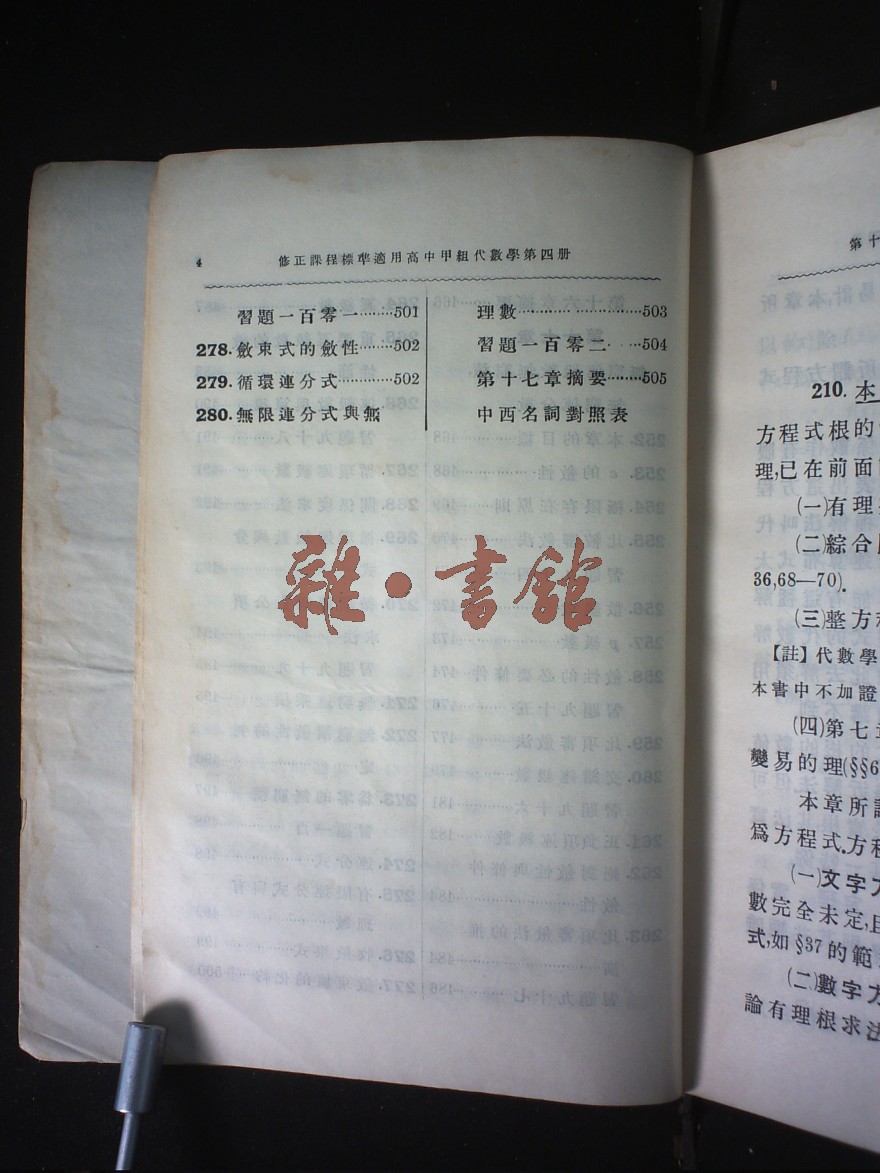 4
修正課程標準適用高中甲組代數學第四册
習題一百零一………501
278.斂束式的斂性……502
279.循環連分式………502
280.無限連分式與無
理數……………………503
習題一百零二………504
第十七章摘要……505
中西名詞對照表
雜·書館
第十
210. 本
方程式根的
理,已在前面
(一)有理
(二)綜合
36,68—70).
(三)整方程
【註】代數學
本書中不加證
(四)第七章
變易的理(§§6
本章所
爲方程式.方程
(一)文字方
數完全未定,且
式,如§37的範
(二)數字方
論有理根求法